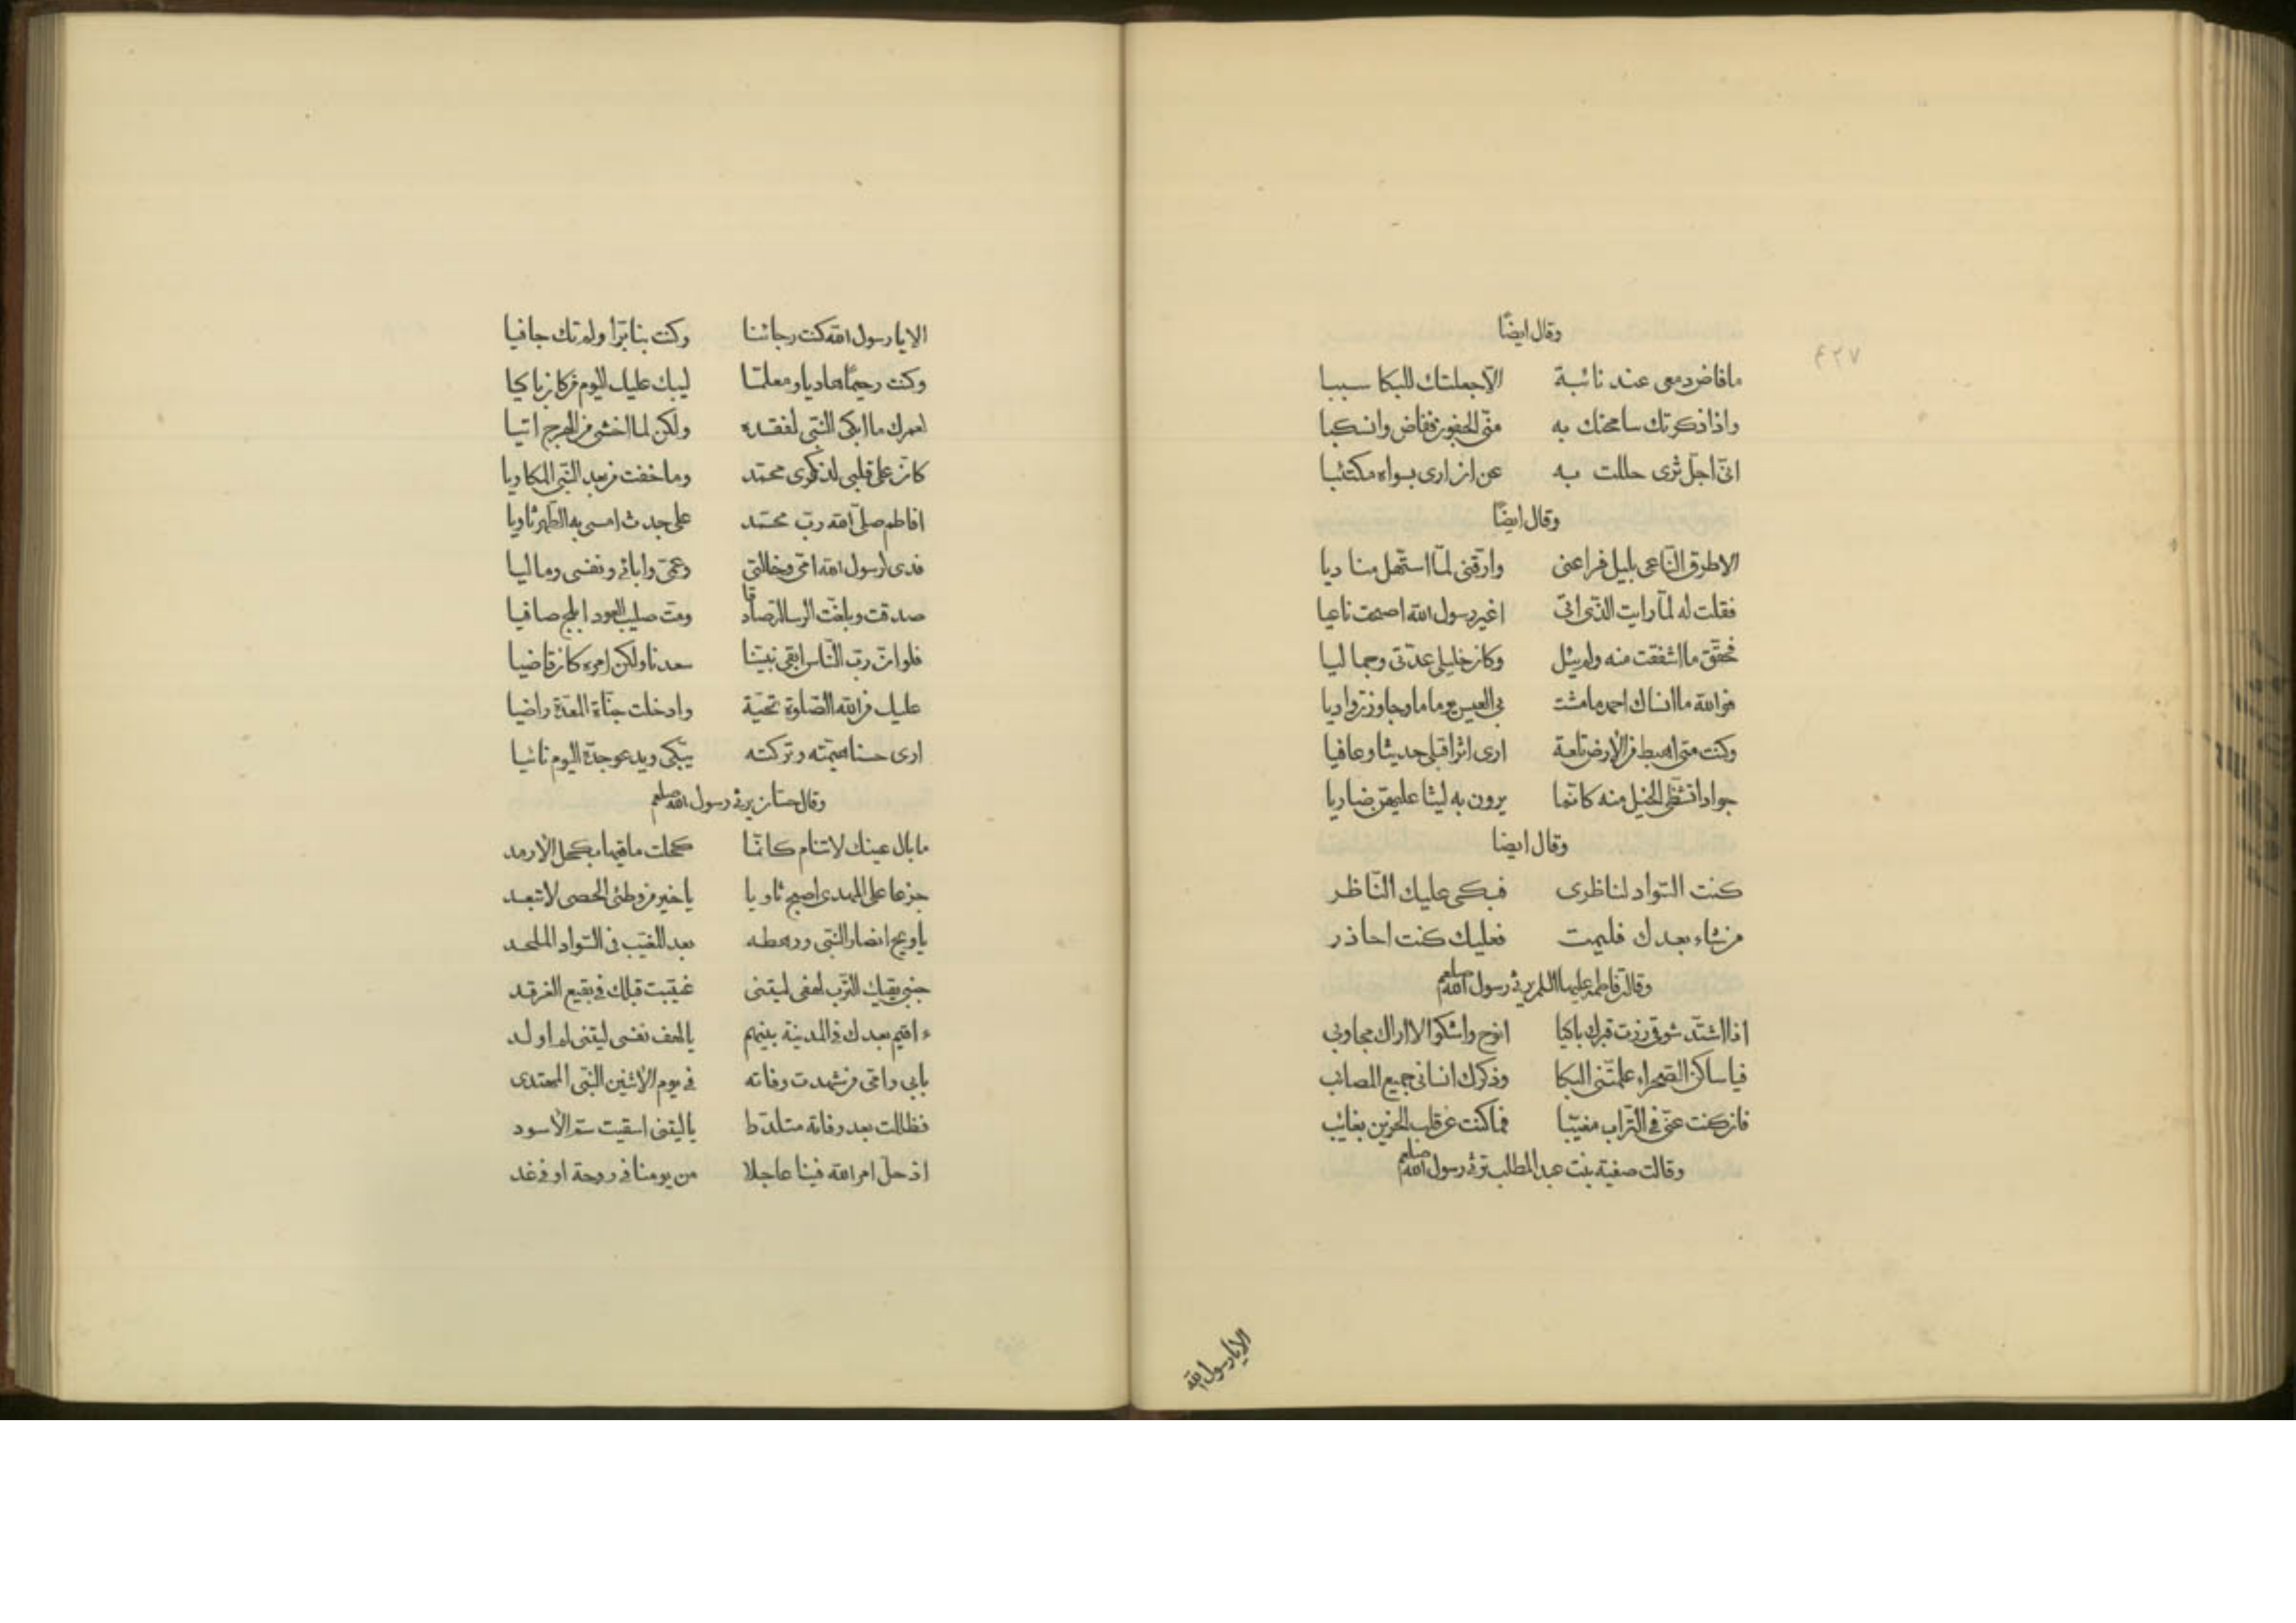 وقال ايضًا
ما فاض دمعى عند نائبة الّا جعلتك للبكا سببا
واذا ذكرتك سامحتك به منّى الجفون ففاض وانسكبا
انّى اجلّ ثرى حللت به عن ان ارى بسواه مكتئبا
وقال ايضًا
الا طرق النّاعى بليل فراعنى وارّقنى لمّا استهل مناديا
فقلت له لمّا رايت الذّى اتى اغير رسول الله اصبحت ناعيا
فحقّق ما اشفقت منه ولم يبل وكان خليلى عدّتى وجماليا
فوالله ما انساك احمد ما مشت بى العيس يوما ما وجاوزن واديا
وكنت متى اهبط من الارض تلعة ارى اثرا قبلى حديثا وعافيا
جوادا تشظّى الخيل منه كانّما يرون به ليثا عليهنّ ضاريا
وقال ايضا
كنت السّواد لناظرى فبكى عليك النّاظر
من شاء بعدك فليمت فعليك كنت احاذر
وقالت فاطمة عليها السلم يرثى رسول الله صلعم
اذا اشتدّ شوقى زرت قبرك باكيا انوح واشكو لا اراك مجاوبى
فيا ساكن الصّحراء علمّتنى البكا وذكرك انسانى جميع المصائب
فان كنت عنّى فى التّراب مغيّبا فما كنت عن قلب الحزين بغائب
وقالت صفية بنت عبد المطلب ترثى رسول الله صلعم
الا يا رسول الله
٤٢٧
الا يا رسول الله كنت رجائنا وكنت بنا برّا ولم تك جافيا
وكنت رحيمًا هاديا ومعلمّا ليبك عليك اليوم من كان باكيا
لعمرك ما ابكى النّبى لفقده ولكن لما اخشى من الهرج اتيا
كانّ على قلبى لذكرى محمّد وما خفت من بعد النّبى المكاويا
افاطم صلّى الله ربّ محمّد على جدث امسى به الطّهر ثاويا
فدى لرسول الله امّى وخالتى وعمّى وابائى ونفسى وماليا
صدقت وبلغت الرسالة صادقا ومت صليب العود ابلج صافيا
فلو انّ ربّ النّاس ابقى نبيّنا سعدنا ولكن امره كان قاضيا
عليك من الله الصّلوة تحيّة وادخلت جنّاة العدن راضيا
ارى حسنا ايتمته وتركته يبّكى ويدعو جدّه اليوم نائيا
وقال حسّان يرثى رسول الله صلعم
ما بال عينك لا تنام كانّا كحلت ماقيها بكحل الارمد
جزعا على المهدى اصبح ثاويا يا خير من وطئى الحصى لا تبعد
يا ويح انصار النّبى ورهطه بعد المغيّب فى السّواد الملحد
جنبى يقيك التّرب لهفى ليتنى غيّبت قبلك فى بقيع الغرقد
ء اقيم بعدك فى المدينة بينهم يا لهف نفسى ليتنى لم اولد
بابى وامّى من شهدت وفاته فى يوم الاثنين النّبى المهتدى
فظللت بعد وفاته متلدّدا يا ليتنى اسقيت سمّ الاسود
اذ حلّ امر الله فينا عاجلا من يومنا فى روحة او فى غد